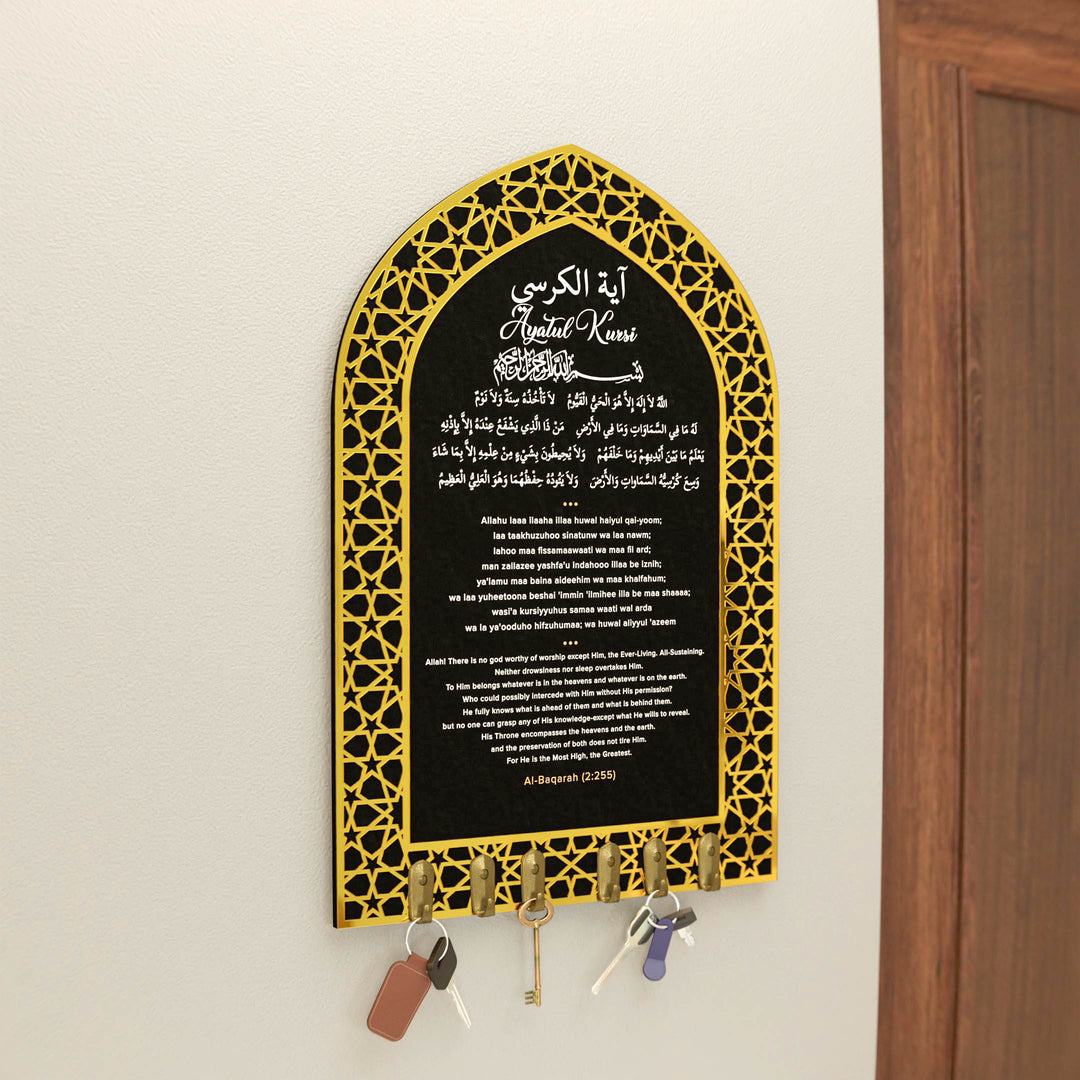 آية الكرسي
Ayatul Kursi
بسم الله الرحمن الرحيم
اللَّهُ لاَ إِلَهَ إِلاَّ هُوَ الْحَيُّ الْقَيُّومُ لاَ تَأْخُذُهُ سِنَةٌ وَلاَ نَوْمٌ
لَهُ مَا فِي السَّمَاوَاتِ وَمَا فِي الأَرْضِ مَنْ ذَا الَّذِي يَشْفَعُ عِنْدَهُ إِلاَّ بِإِذْنِهِ
يَعْلَمُ مَا بَيْنَ أَيْدِيهِمْ وَمَا خَلْفَهُمْ وَلاَ يُحِيطُونَ بِشَيْءٍ مِنْ عِلْمِهِ إِلاَّ بِمَا شَاءَ
وَسِعَ كُرْسِيُّهُ السَّمَاواتِ وَالأَرْضَ وَلاَ يَئُودُهُ حِفْظُهُمَا وَهُوَ الْعَلِيُّ الْعَظِيمُ
Allahu laaa ilaaha illaa huwal haiyul qai-yoom;
laa taakhuzuhoo sinatunw wa laa nawm;
lahoo maa fissamaawaati wa maa fil ard;
man zallazee yashfa'u indahooo illaa be iznih;
ya'lamu maa baina aideehim wa maa khalfahum;
wa laa yuheetoona beshai 'immin 'ilmihee illa be maa shaaaa;
wasi'a kursiyyuhus samaa waati wal arda
wa la ya'ooduho hifzuhumaa; wa huwal aliyyul 'azeem
Allah! There is no god worthy of worship except Him, the Ever-Living. All-Sustaining.
Neither drowsiness nor sleep overtakes Him.
To Him belongs whatever is in the heavens and whatever is on the earth.
Who could possibly intercede with Him without His permission?
He fully knows what is ahead of them and what is behind them.
but no one can grasp any of His knowledge-except what He wills to reveal.
His Throne encompasses the heavens and the earth.
and the preservation of both does not tire Him.
For He is the Most High, the Greatest.
Al-Baqarah (2:255)